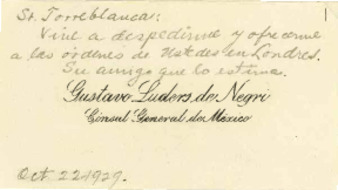 Sr. Torreblanca:
Vine a despedirme y ofrecerme
a las órdenes de Ustedes en Londres.
Su amigo que lo estima.
Gustavo Luders de Negri
Cónsul General de México
Oct 22 1929.